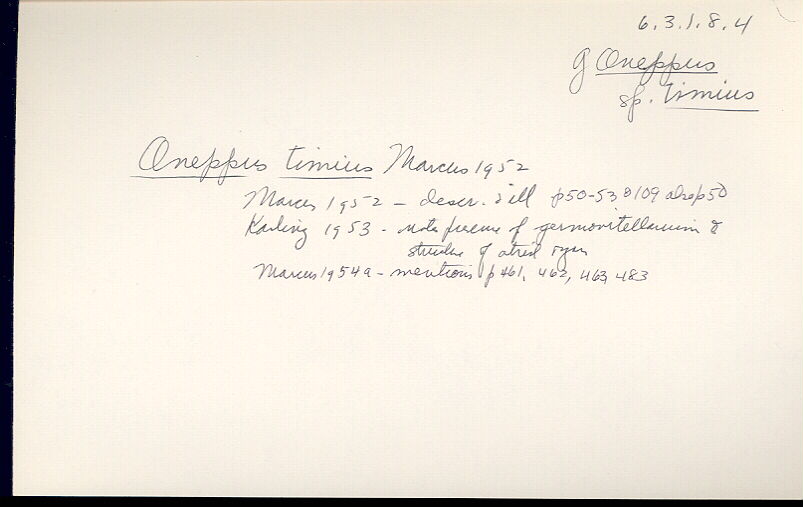 6.3.1.8.4
g Oneppus
sp. timius
Oneppus timius Marcus 1952
Marcus 1952 - descr. & ill p50-53 & 109 also p50
Karling 1953 - note presence of germovitellarium &
structure of atrial organ
Marcus 1954a - mentions p 461, 462, 463, 483